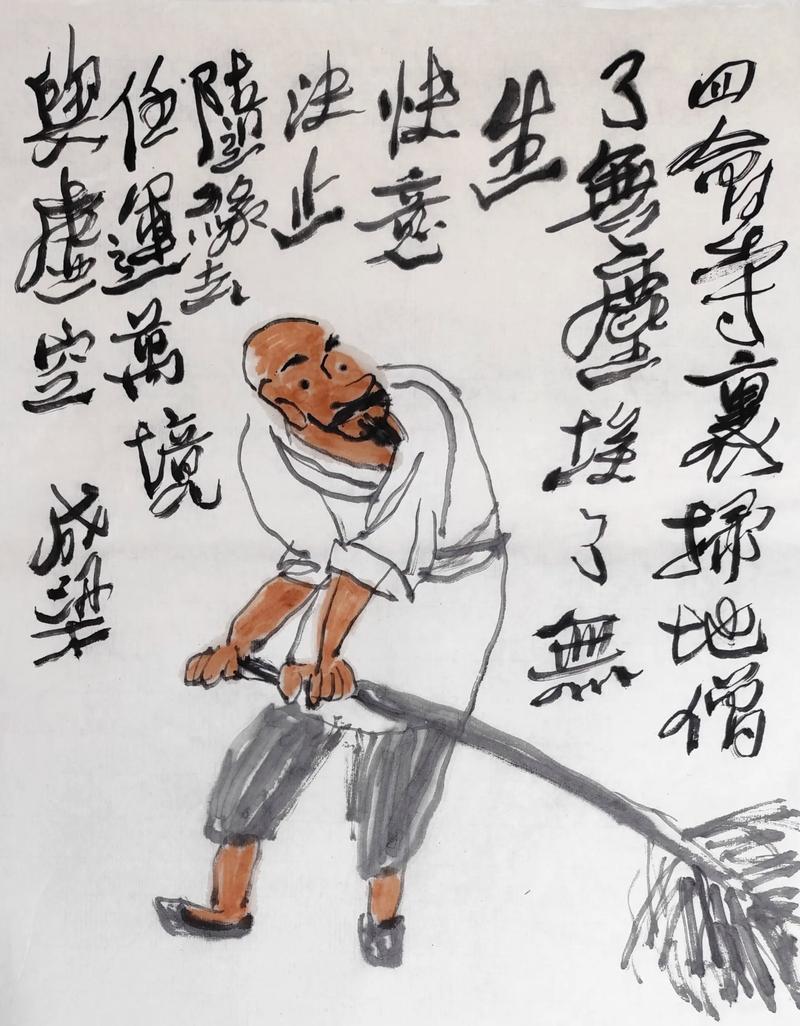 四會寺裏掃地僧
了無塵埃了無
生
快意
决止
隨緣去
任運萬境
與虛空
成梁